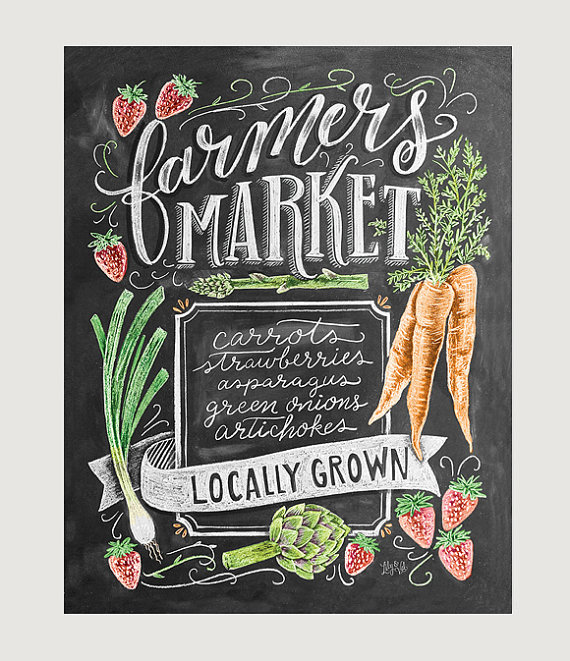 farmers
MARKET
carrots
strawberries
asparagus
green onions
artichokes
LOCALLY GROWN
Lily & Val